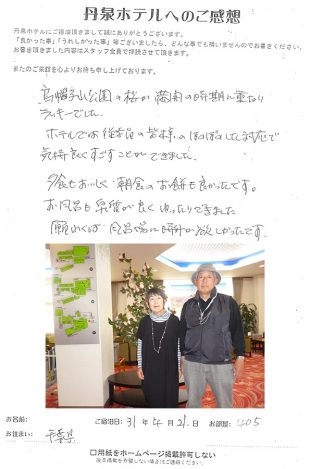 丹泉ホテルへのご感想
丹泉ホテルにご宿泊頂きまして誠にありがとうございます。
「良かった事」「うれしかった事」等ございましたら、どんな事でも構いませんのでお書きください。
お書き頂きました内容はスタッフ全員で拝読させて頂きます。
またのご来館を心よりお待ち申し上げております。
烏帽子山公園の桜が満開の時期に重なり
ラッキーでした。
ホテルでは従業員の皆様のほのぼのした対応で
気持良くすごすことができました。
夕食もおいしく朝食のお餅も良かったです。
お風呂も泉質が良くゆったりできました
願わくば風呂場に時計が欲しかったです。
お名前:
ご宿泊日: 31年4月21日
お部屋: 405
お住まい: 千葉県
口用紙をホームページ掲載許可しない